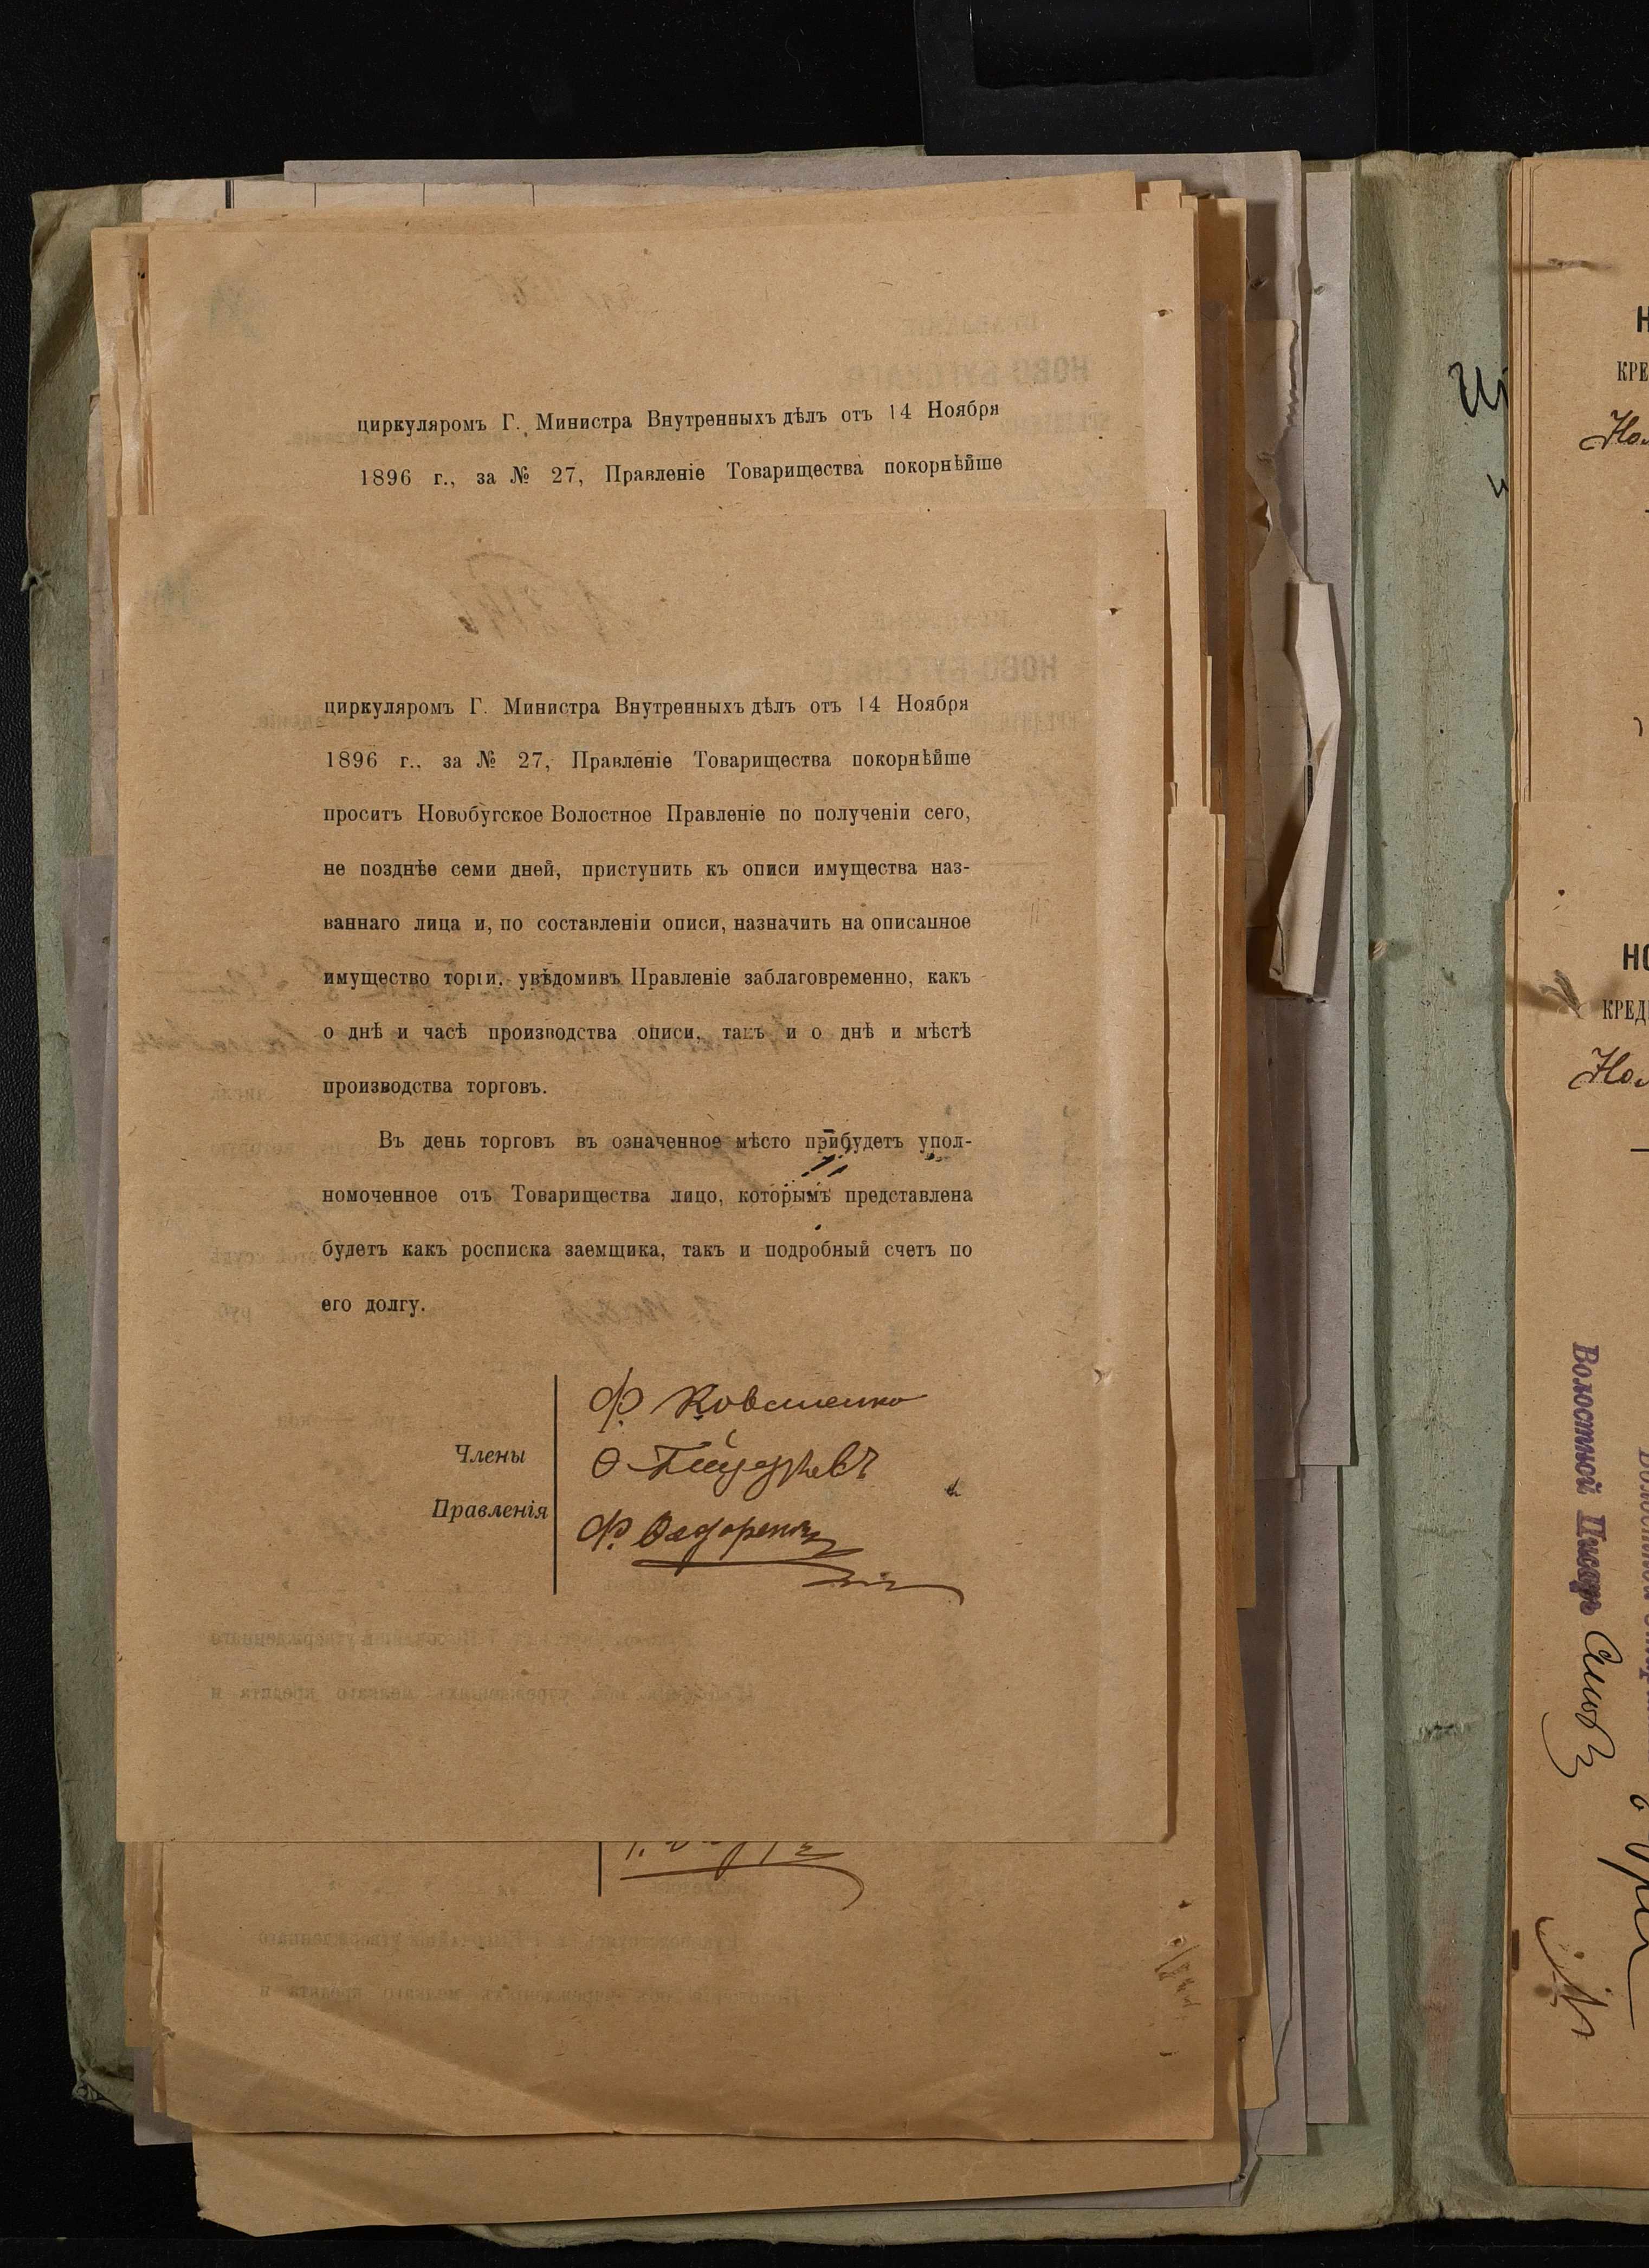 циркуляромъ Г. Министра Внутренныхъ дѣлъ отъ 14 Ноября
1896 г., за № 27, Правленіе Товарищества покорнѣйше
циркуляромъ Г. Министра Внутренныхъ дѣлъ отъ 14 Ноября
1896 г., за № 27, Правленіе Товарищества покорнѣйше
проситъ Новобугское Волостное Правленіе по полученіи сего,
не позднѣе семи дней, приступить къ описи имущества наз-
ваннаго лица и, по составленіи описи, назначить на описанное
имущество торги, увѣдомивъ Правленіе заблаговременно, какъ
о днѣ и часѣ производства описи, такъ и о днѣ и мѣстѣ
производства торговъ.
Въ день торговъ въ означенное мѣсто прибудетъ упол-
номоченное отъ Товарищества лицо, которымъ представлена
будетъ какъ росписка заемщика, такъ и подробный счетъ по
его долгу.
Члены
Правленія
Ф. Коваленко
Ф. Федоренко
Н
КРЕ
НО
КРЕД
Волостной Писарь